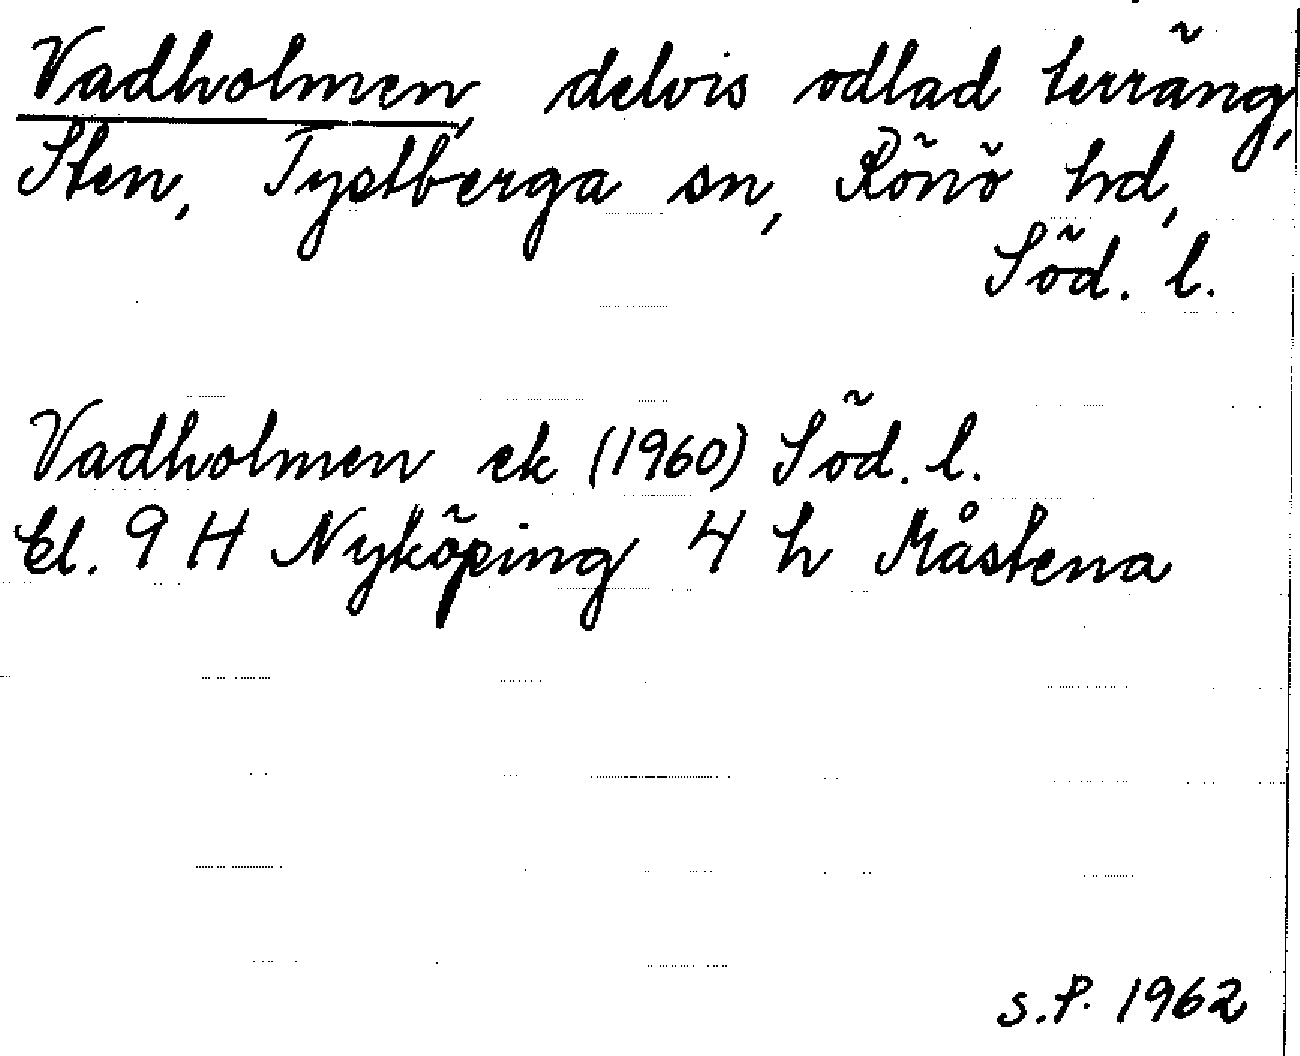 Vadholmen, delvis odlad terräng,
Sten, Tystberga sn, Rönö hd,
Söd. l.
Vadholmen ek (1960) Söd. l.
bl. 9 H Nyköping 4 h Måstena
s.P. 1962